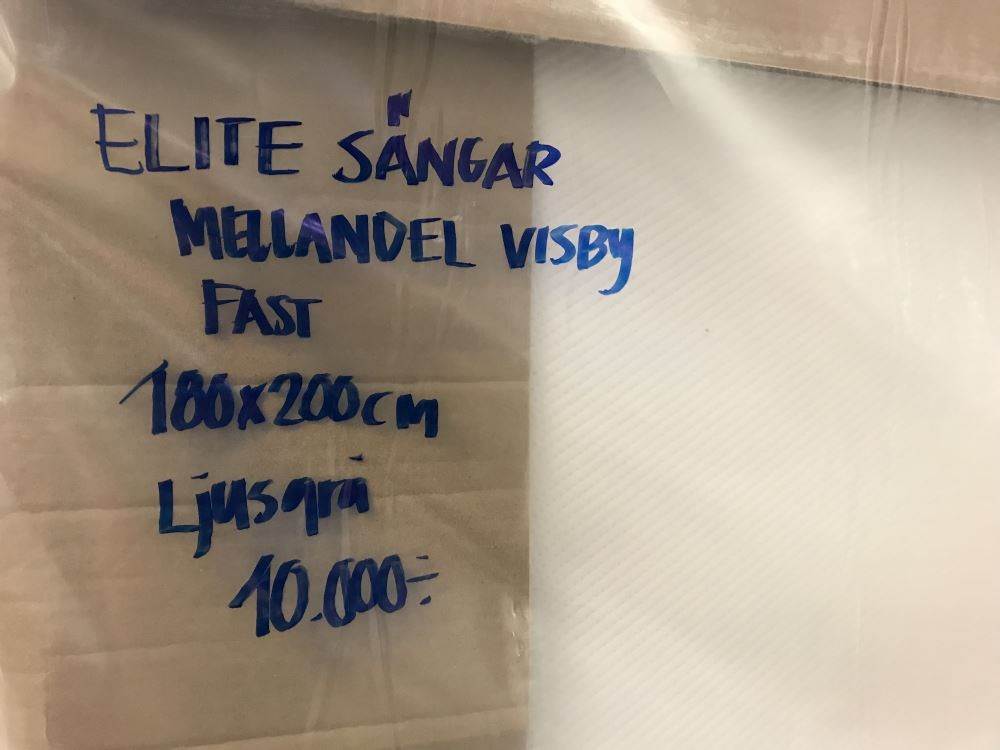 ELITE SÄNGAR
MELLANDEL VISBY
FAST
180x200cm
Ljusgrå
10.000:-